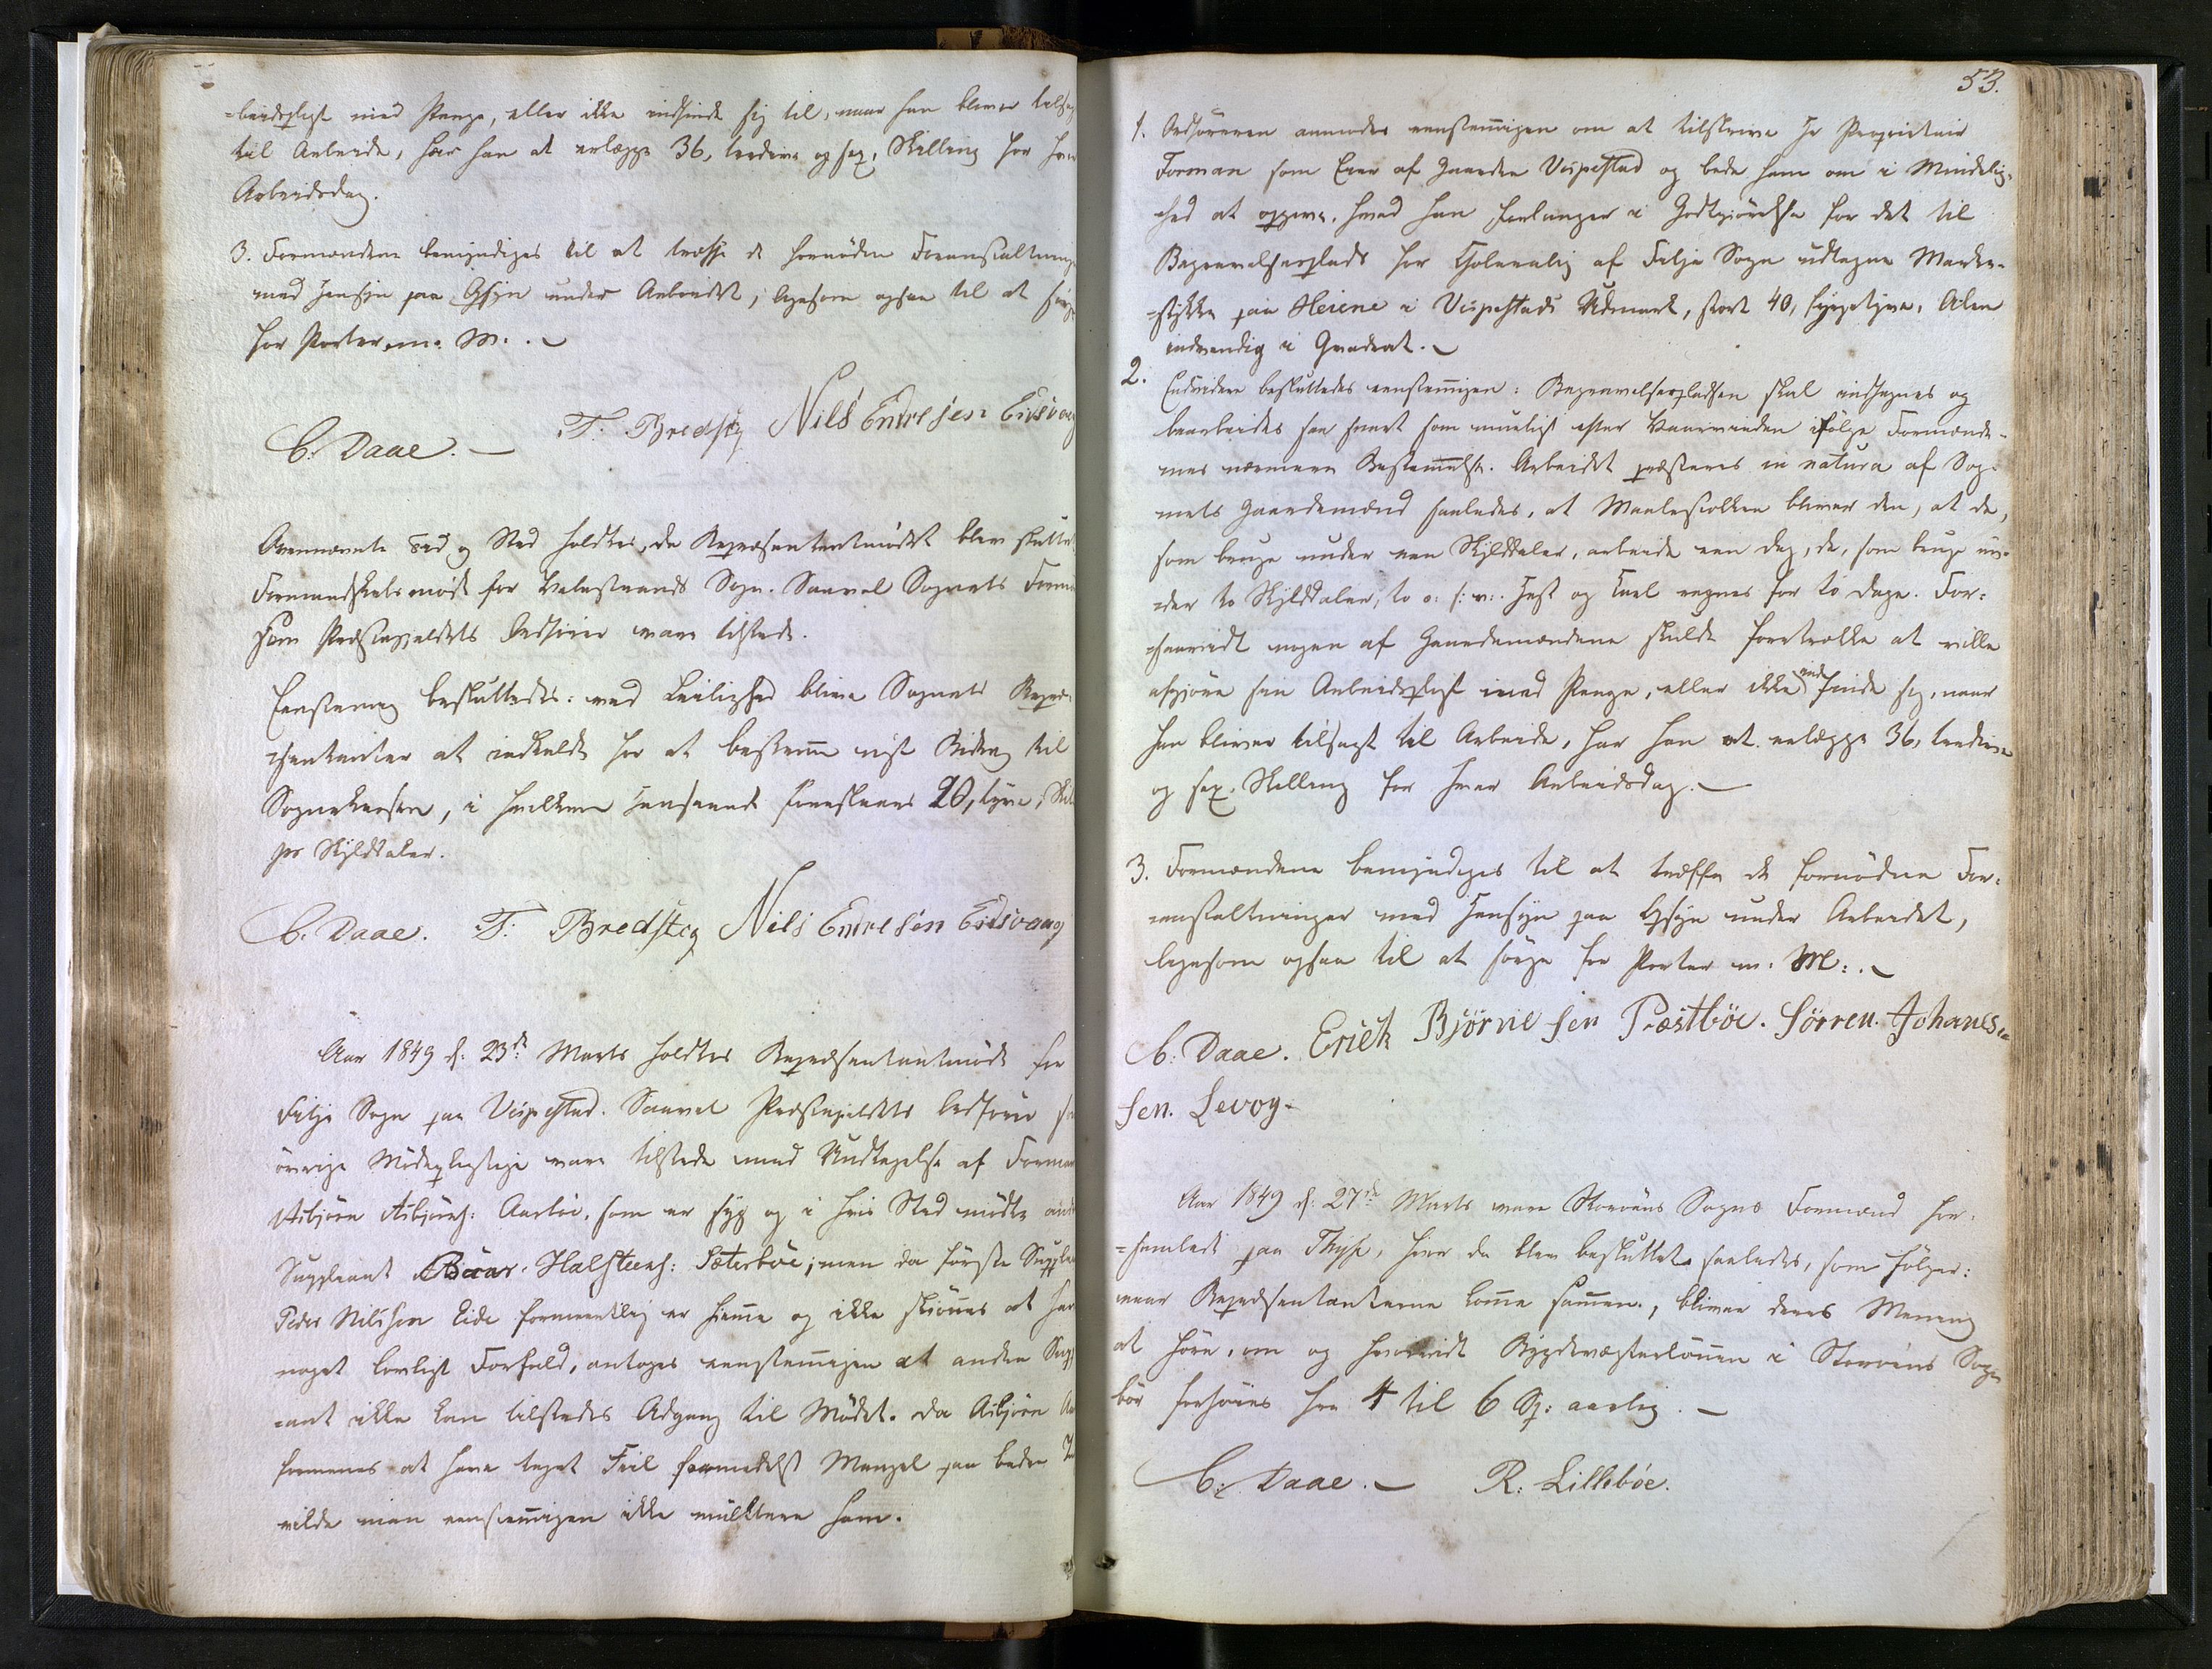 =beidspligt med Penge, eller ikke indfinde sig til, naar han bliver tilsagt
til Arbeide, har han at erlægge 36, tredive og sex, Skilling for hver
Arbeidsdag.
3. Formændene bemyndiges til at træffe de fornødne Foranstaltninger
med Hensyn paa Opsyn under Arbeidet, ligesom ogsaa til at sørge
for Porter m. M. .
C. Daae. T: Bredsteg Nils Endresen Eidsvaag
Ovennævnte Tid og Sted holdtes, da Repræsentantmødet blev sluttet
Formandskabsmøde for Valestrands Sogn. Saavel Sognets Formænd
som Præstegjeldets Ordfører vare tilstede.
Eenstemig besluttedes: ved Leilighed blive Sognets Repræ-
=sentanter at indkalde for at bestemme vist Bidrag til
Sognekassen, i hvilken Henseende foreslaaes 20, tyve, Skil
pr Skylddaler.
C. Daae. T: Bredsteg Nils Endresen Eidsvaag
Aar 1849 d: 23de Marts holdtes Repræsentantmøde for
Fitje Sogn paa Vespestad. Saavel Præstegjeldets Ordfører som
øvrige Mødepligtige vare tilstede med Undtagelse af Formand
Asbjørn Asbjørns: Aarbøe, som er syg og i hvis Sted mødte anden
Suppleant Baar Halsteens: Sæterbøe; men da første Supple
Peder Nilssen Eide formeentlig er hjemme og ikke skjønnes at have
noget lovligt Forfald, antoges eenstemmigen at anden Supp
=ant ikke kan tilstedes Adgang til Mødet. Da Asbjørn
formenes at have taget Feil formedelst Mangel paa bedre
vilde man eenstemmigen ikke mulktere ham.
53.
1. Ordføreren anmodes eenstemmigen om at tilskrive Hr Proprietair
Forman som Eier af Gaarden Vespestad og bede ham om i Mindelig-
=hed at opgive, hvad han forlanger i Godtgjørelse for det til
Begravelsesplads for Choleralig af Fitje Sogn udtagne Marke-
=stykke paa Heiene i Vespestads Udmark, stort 40, fyrgetyve, Alen
indvendig i Qvadrat.
2. Endvidere besluttedes eenstemmigen: Begravelsespladsen skal indhegnes og
bearbeides saa snart som mueligt efter Vaaronnden ifølge Formænde-
nes nærmere Bestemmelse. Arbeidet præsteres in natura af Sog-
nets Gaardemænd saaledes, at Maalestokken bliver den, at de,
som bruge under een Skylddaler, arbeide een Dag, de, som bruge un-
=der to Skylddaler, to o: s: v:. Hest og Karl regnes for to Dage. For-
=saavidt nogen af Gaardemændene skulde foretrække at ville
afgjøre sin Arbeidspligt med Penge, eller ikke indfinde sig, naar
han bliver tilsagt til Arbeide, har han at erlægge 36, tredive
og sex, Skilling for hver Arbeidsdag.
3. Formændene bemyndiges til at træffe de fornødne For-
=anstaltninger med Hensyn paa Opsyn under Arbeidet,
ligesom ogsaa til at sørge for Porter m. M: .
C: Daae. Eriek Bjørne sen Præstbøe. Sørren Johanes=
sen. Levog.
Aar 1849 d: 27de Marts vare Storøens Sogns Formænd for-
=samlede paa Thyse, hvor da blev besluttet saaledes, som følger:
naar Repræsentanterne komme sammen, bliver deres Mening
at høre, om og hvorvidt Bygdevægterlønnen i Storøens Sogn
bør forhøies fra 4 til 6 Sp: aarlig.
C: Daae. R: Lillebøe.